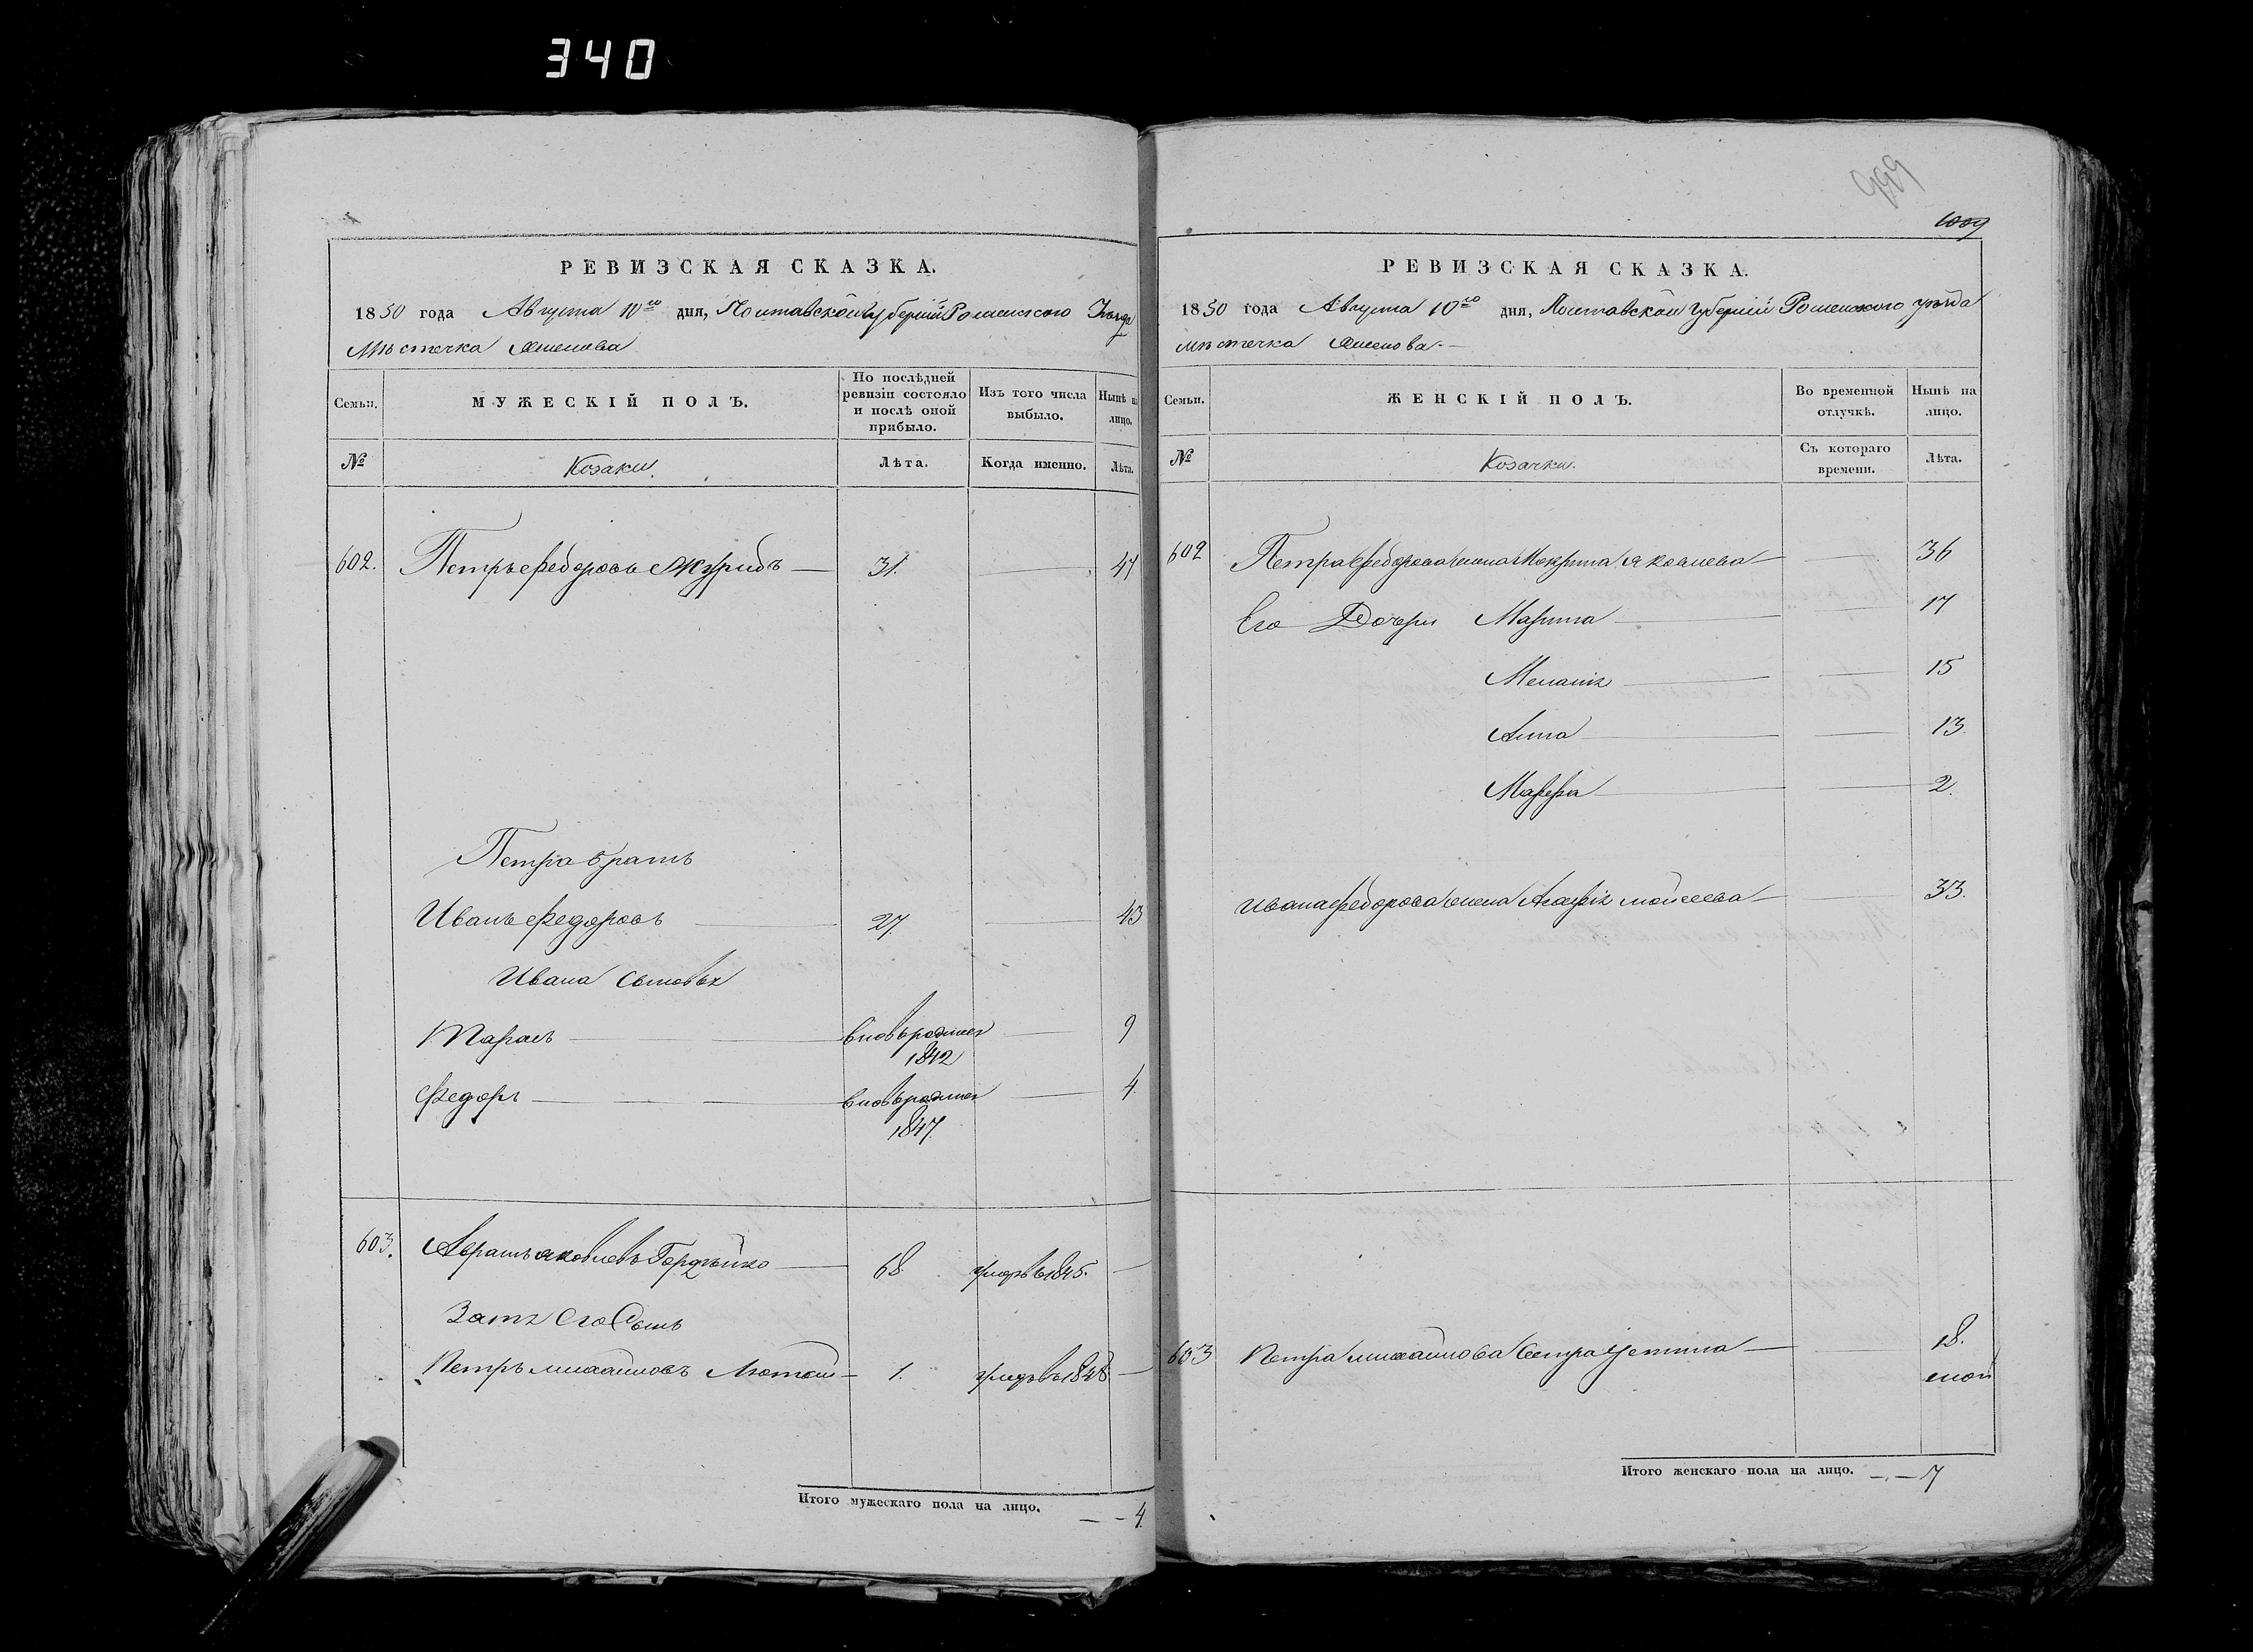 340
999
1009
РЕВИЗСКАЯ СКАЗКА.
1850 года Августа 10го дня, Полтавской Губернии Роменского Уезда
Местечка
Семьи. МУЖЕСКІЙ ПОЛЪ. По послѣдней ревизіи состояло и послѣ оной прибыло. Изъ того числа выбыло. Нынѣ на лицо.
№ Козаки. Лѣта. Когда именно. Лѣта.
602. Петръ Федоровъ 31.
Петра братъ
Иванъ Федоровъ 27. 43
Ивана сыновья
1. Тарасъ вновьрожден 9
1842
Федоръ вновьрожден 4.
1847.
603. Аврамъ Яковлевъ 68. умръ в 1845.
Зятя его Сынъ
Петръ Михайловъ Лютой 1. умръ въ 1848.
Итого мужескаго пола на лицо. 4.
РЕВИЗСКАЯ СКАЗКА.
1850 года Августа 10го дня, Полтавской Губернии Роменского уѣзда
местечка
Семьи. ЖЕНСКІЙ ПОЛЪ. Во временной отлучкѣ. Нынѣ на лицо.
№ Козачки. Съ котораго времени. Лѣта.
602 Петра Федорова жена Мокрина Яковлева 36
Его Дочери Марина 17
Меланія 15
Анна 13.
Марфа 2.
Ивана Федорова жена Агафія Моисеева 33.
603 Петра Михайлова Сестра Устина 18.
Итого женскаго пола на лицо. 7